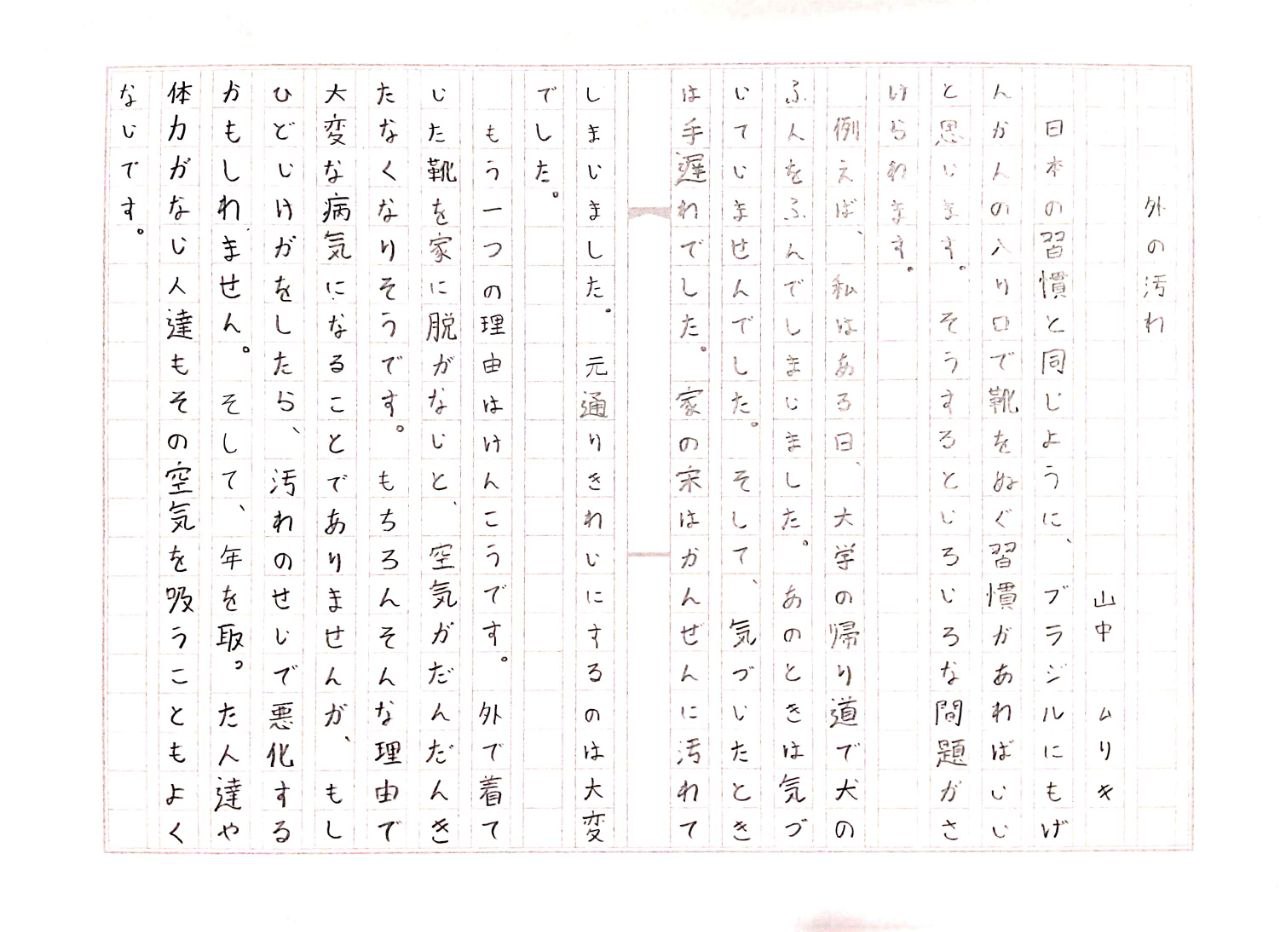 外の汚れ
山中 ムリキ
日本の習慣と同じように、ブラジルにもげ
んかんの入り口で靴をぬぐ習慣があればいい
と思います。そうするといろいろな問題がさ
けられます。
例えば、私はある日、大学の帰り道で犬の
ふんをふんでしまいました。あのときは気づ
いていませんでした。そして、気づいたとき
は手遅れでした。家の床はかんぜんに汚れて
しまいました。元通りきれいにするのは大変
でした。
もう一つの理由はけんこうです。外で着て
いた靴を家に脱がないと、空気がだんだんき
たなくなりそうです。もちろんそんな理由で
大変な病気になることでありませんが、もし
ひどいけがをしたら、汚れのせいで悪化する
かもしれません。そして、年を取った人達や
体力がない人達もその空気を吸うこともよく
ないです。